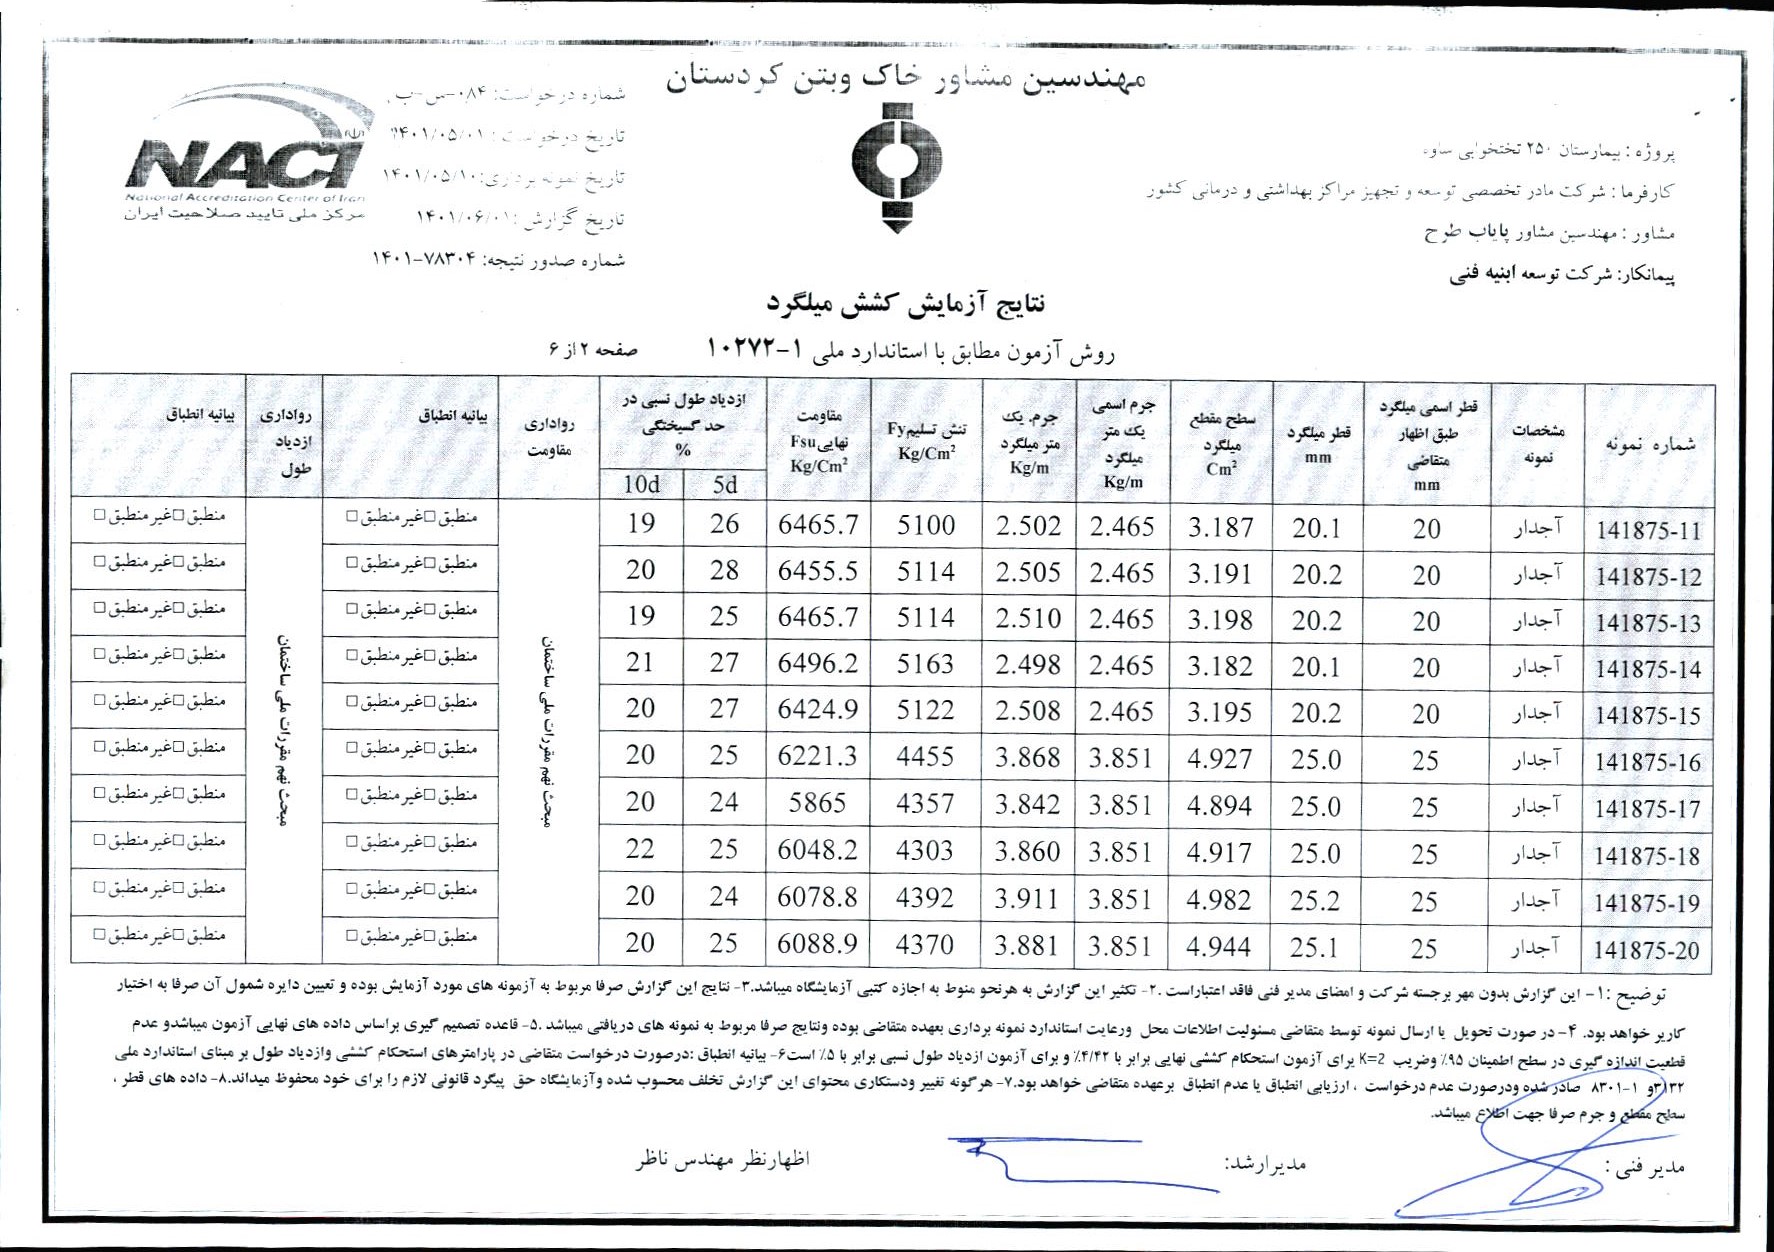 مهندسین مشاور خاک وبتن کردستان
پروژه : بیمارستان ۲۵۰ تختخوابی ساوه
کارفرما : شرکت مادر تخصصی توسعه و تجهیز مراکز بهداشتی و درمانی کشور
مشاور : مهندسین مشاور پایاب طرح
پیمانکار: شرکت توسعه ابنیه فنی
شماره درخواست: ۰۸۴-س-ب
تاریخ درخواست : ۱۴۰۱/۰۵/۰۱
تاریخ نمونه برداری: ۱۴۰۱/۰۵/۱۰
تاریخ گزارش : ۱۴۰۱/۰۶/۰۱
شماره صدور نتیجه: ۷۸۳۰۴-۱۴۰۱
NACI
National Accreditation Center of Iran
مرکز ملی تایید صلاحیت ایران
نتایج آزمایش کشش میلگرد
روش آزمون مطابق با استاندارد ملی ۱-۱۰۲۷۲ صفحه ۲ از ۶
شماره نمونه | مشخصات نمونه | قطر اسمی میلگرد طبق اظهار متقاضی mm | قطر میلگرد mm | سطح مقطع میلگرد Cm² | جرم اسمی یک متر میلگرد Kg/m | جرم, یک متر میلگرد Kg/m | تنش تسلیم Fy Kg/Cm² | مقاومت نهایی Fsu Kg/Cm² | ازدیاد طول نسبی در حد گسیختگی % 5d | 10d | رواداری مقاومت | بیانیه انطباق | رواداری ازدیاد طول | بیانیه انطباق
141875-11 آجدار 20 20.1 3.187 2.465 2.502 5100 6465.7 26 19 منطبق□غیر منطبق□ منطبق□غیر منطبق□
141875-12 آجدار 20 20.2 3.191 2.465 2.505 5114 6455.5 28 20 منطبق□غیر منطبق□ منطبق□غیر منطبق□
141875-13 آجدار 20 20.2 3.198 2.465 2.510 5114 6465.7 25 19 منطبق□غیر منطبق□ منطبق□غیر منطبق□
141875-14 آجدار 20 20.1 3.182 2.465 2.498 5163 6496.2 27 21 منطبق□غیر منطبق□ منطبق□غیر منطبق□
141875-15 آجدار 20 20.2 3.195 2.465 2.508 5122 6424.9 27 20 منطبق□غیر منطبق□ منطبق□غیر منطبق□
141875-16 آجدار 25 25.0 4.927 3.851 3.868 4455 6221.3 25 20 منطبق□غیر منطبق□ منطبق□غیر منطبق□
141875-17 آجدار 25 25.0 4.894 3.851 3.842 4357 5865 24 20 منطبق□غیر منطبق□ منطبق□غیر منطبق□
141875-18 آجدار 25 25.0 4.917 3.851 3.860 4303 6048.2 25 22 منطبق□غیر منطبق□ منطبق□غیر منطبق□
141875-19 آجدار 25 25.2 4.982 3.851 3.911 4392 6078.8 24 20 منطبق□غیر منطبق□ منطبق□غیر منطبق□
141875-20 آجدار 25 25.1 4.944 3.851 3.881 4370 6088.9 25 20 منطبق□غیر منطبق□ منطبق□غیر منطبق□
مبحث نهم مقررات ملی ساختمان
مبحث نهم مقررات ملی ساختمان
توضیح :۱- این گزارش بدون مهر برجسته شرکت و امضای مدیر فنی فاقد اعتباراست .۲- تکثیر این گزارش به هرنحو منوط به اجازه کتبی آزمایشگاه میباشد.۳- نتایج این گزارش صرفا مربوط به آزمونه های مورد آزمایش بوده و تعیین دایره شمول آن صرفا به اختیار
کاربر خواهد بود. ۴- در صورت تحویل یا ارسال نمونه توسط متقاضی مسئولیت اطلاعات محل ورعایت استاندارد نمونه برداری بعهده متقاضی بوده ونتایج صرفا مربوط به نمونه های دریافتی میباشد .۵- قاعده تصمیم گیری براساس داده های نهایی آزمون میباشدو عدم
قطعیت اندازه گیری در سطح اطمینان ۹۵٪ وضریب K=2 برای آزمون استحکام کششی نهایی برابر با ۴/۴۲٪ و برای آزمون ازدیاد طول نسبی برابر با ۵٪ است۶- بیانیه انطباق :درصورت درخواست متقاضی در پارامترهای استحکام کششی وازدیاد طول بر مبنای استاندارد ملی
۳۱۳۲و ۱-۸۳۰۱ صادر شده ودرصورت عدم درخواست ، ارزیابی انطباق یا عدم انطباق برعهده متقاضی خواهد بود.۷- هرگونه تغییر ودستکاری محتوای این گزارش تخلف محسوب شده وآزمایشگاه حق پیگرد قانونی لازم را برای خود محفوظ میداند.۸- داده های قطر ،
سطح مقطع و جرم صرفا جهت اطلاع میباشد.
مدیر فنی : مدیرارشد: اظهارنظر مهندس ناظر